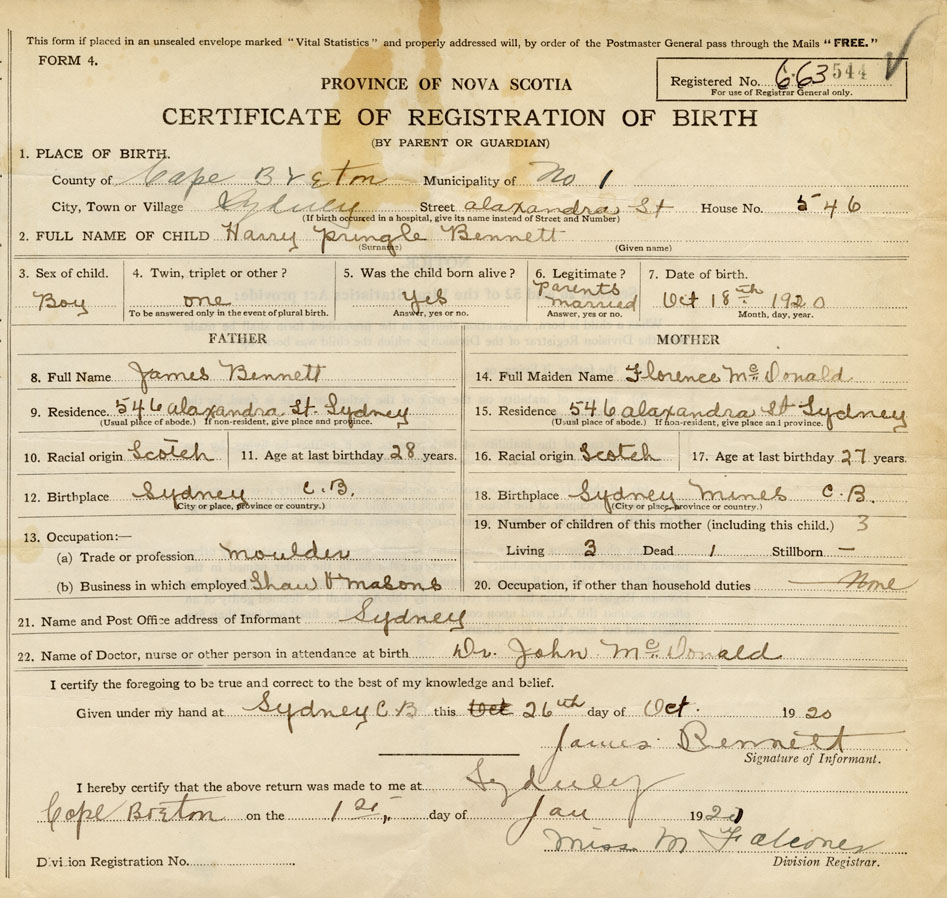 This form if placed in an unsealed envelope marked "Vital Statistics" and properly addressed will, by order of the Postmaster General pass through the Mails "FREE."
FORM 4.
Registered No. 663 544
For use of Registrar General only.
PROVINCE OF NOVA SCOTIA
CERTIFICATE OF REGISTRATION OF BIRTH
(BY PARENT OR GUARDIAN)
1. PLACE OF BIRTH.
County of Cape Breton Municipality of No 1
City, Town or Village Sydney Street alaxandra St House No. 546
(If birth occured in a hospital, give its name instead of Street and Number)
2. FULL NAME OF CHILD Harry Pringle Bennett
(Surname) (Given name)
3. Sex of child. 4. Twin, triplet or other? 5. Was the child born alive? 6. Legitimate? 7. Date of birth.
Boy one Yes Parents married Oct 18th 1920
To be answered only in the event of plural birth. Answer, yes or no. Answer, yes or no. Month, day, year.
FATHER MOTHER
8. Full Name James Bennett 14. Full Maiden Name Florence Mc Donald
9. Residence 546 alaxandra St. Sydney 15. Residence 546 alaxandra St Sydney
(Usual place of abode.) If non-resident, give place and province. (Usual place of abode.) If non-resident, give place and province.
10. Racial origin Scotch 11. Age at last birthday 28 years. 16. Racial origin Scotch 17. Age at last birthday 27 years.
12. Birthplace Sydney C.B. 18. Birthplace Sydney Mines C.B.
(City or place, province or country.) (City or place, province or country.)
13. Occupation:— 19. Number of children of this mother (including this child.) 3
(a) Trade or profession moulder Living 3 Dead 1 Stillborn –
(b) Business in which employed Shaw & masons 20. Occupation, if other than household duties None
21. Name and Post Office address of Informant Sydney
22. Name of Doctor, nurse or other person in attendance at birth Dr. John Mc Donald
I certify the foregoing to be true and correct to the best of my knowledge and belief.
Given under my hand at Sydney C B this Oct 26th day of Oct. 1920
James Bennett
Signature of Informant.
I hereby certify that the above return was made to me at Sydney
Cape Breton on the 1st day of Jan 1921
Miss M Falconer
Division Registration No. Division Registrar.